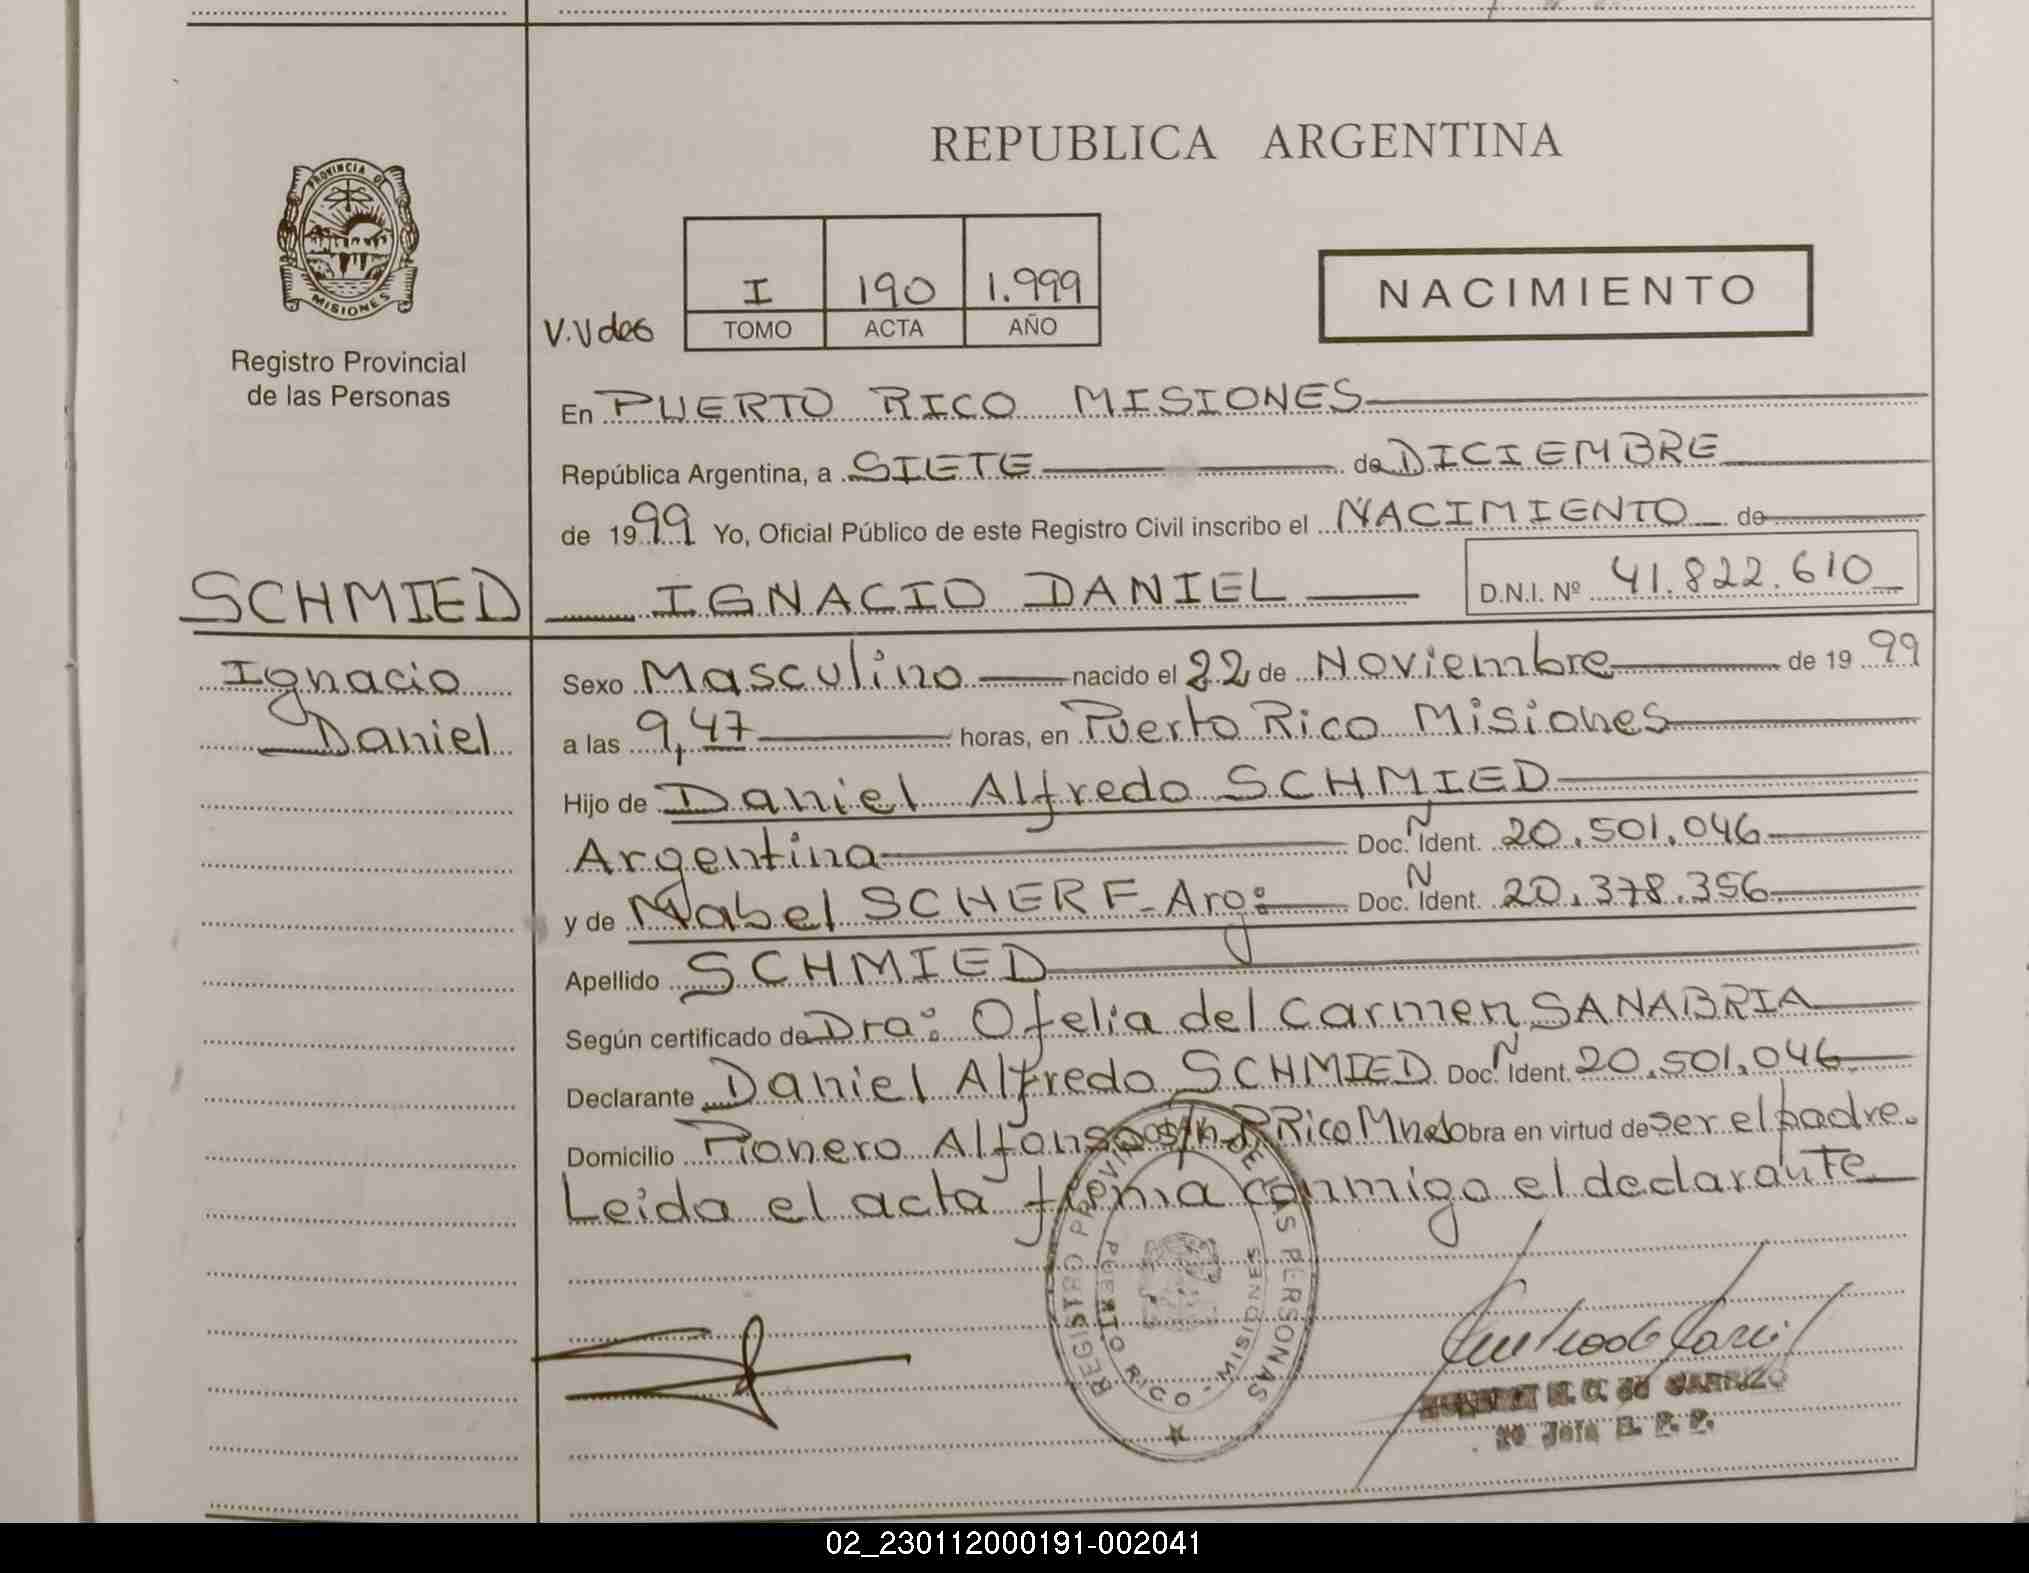 REPUBLICA ARGENTINA
PROVINCIA DE
MISIONES
Registro Provincial
de las Personas
I 190 1.999
TOMO ACTA AÑO
NACIMIENTO
En PUERTO RICO MISIONES
República Argentina, a SIETE de DICIEMBRE
de 1999 Yo, Oficial Público de este Registro Civil inscribo el NACIMIENTO de
SCHMIED IGNACIO DANIEL D.N.I. Nº 41.822.610
Ignacio
Daniel
Sexo Masculino nacido el 22 de Noviembre de 1999
a las 9,47 horas, en Puerto Rico Misiones
Hijo de Daniel Alfredo SCHMIED
Argentina Doc. N Ident. 20.501.046
y de Mabel SCHERF - Arg: Doc. N Ident. 20.378.356
Apellido SCHMIED
Según certificado de Dra: Ofelia del Carmen SANABRIA
Declarante Daniel Alfredo SCHMIED Doc. N Ident. 20.501.046
Domicilio Pionero Alfonso s/n P Rico Mnes Obra en virtud de ser el padre.
Leida el acta firma conmigo el declarante
REGISTRO PROVINCIAL DE LAS PERSONAS
PUERTO RICO - MISIONES
de CARRIZO
R. P. P.
02_230112000191-002041